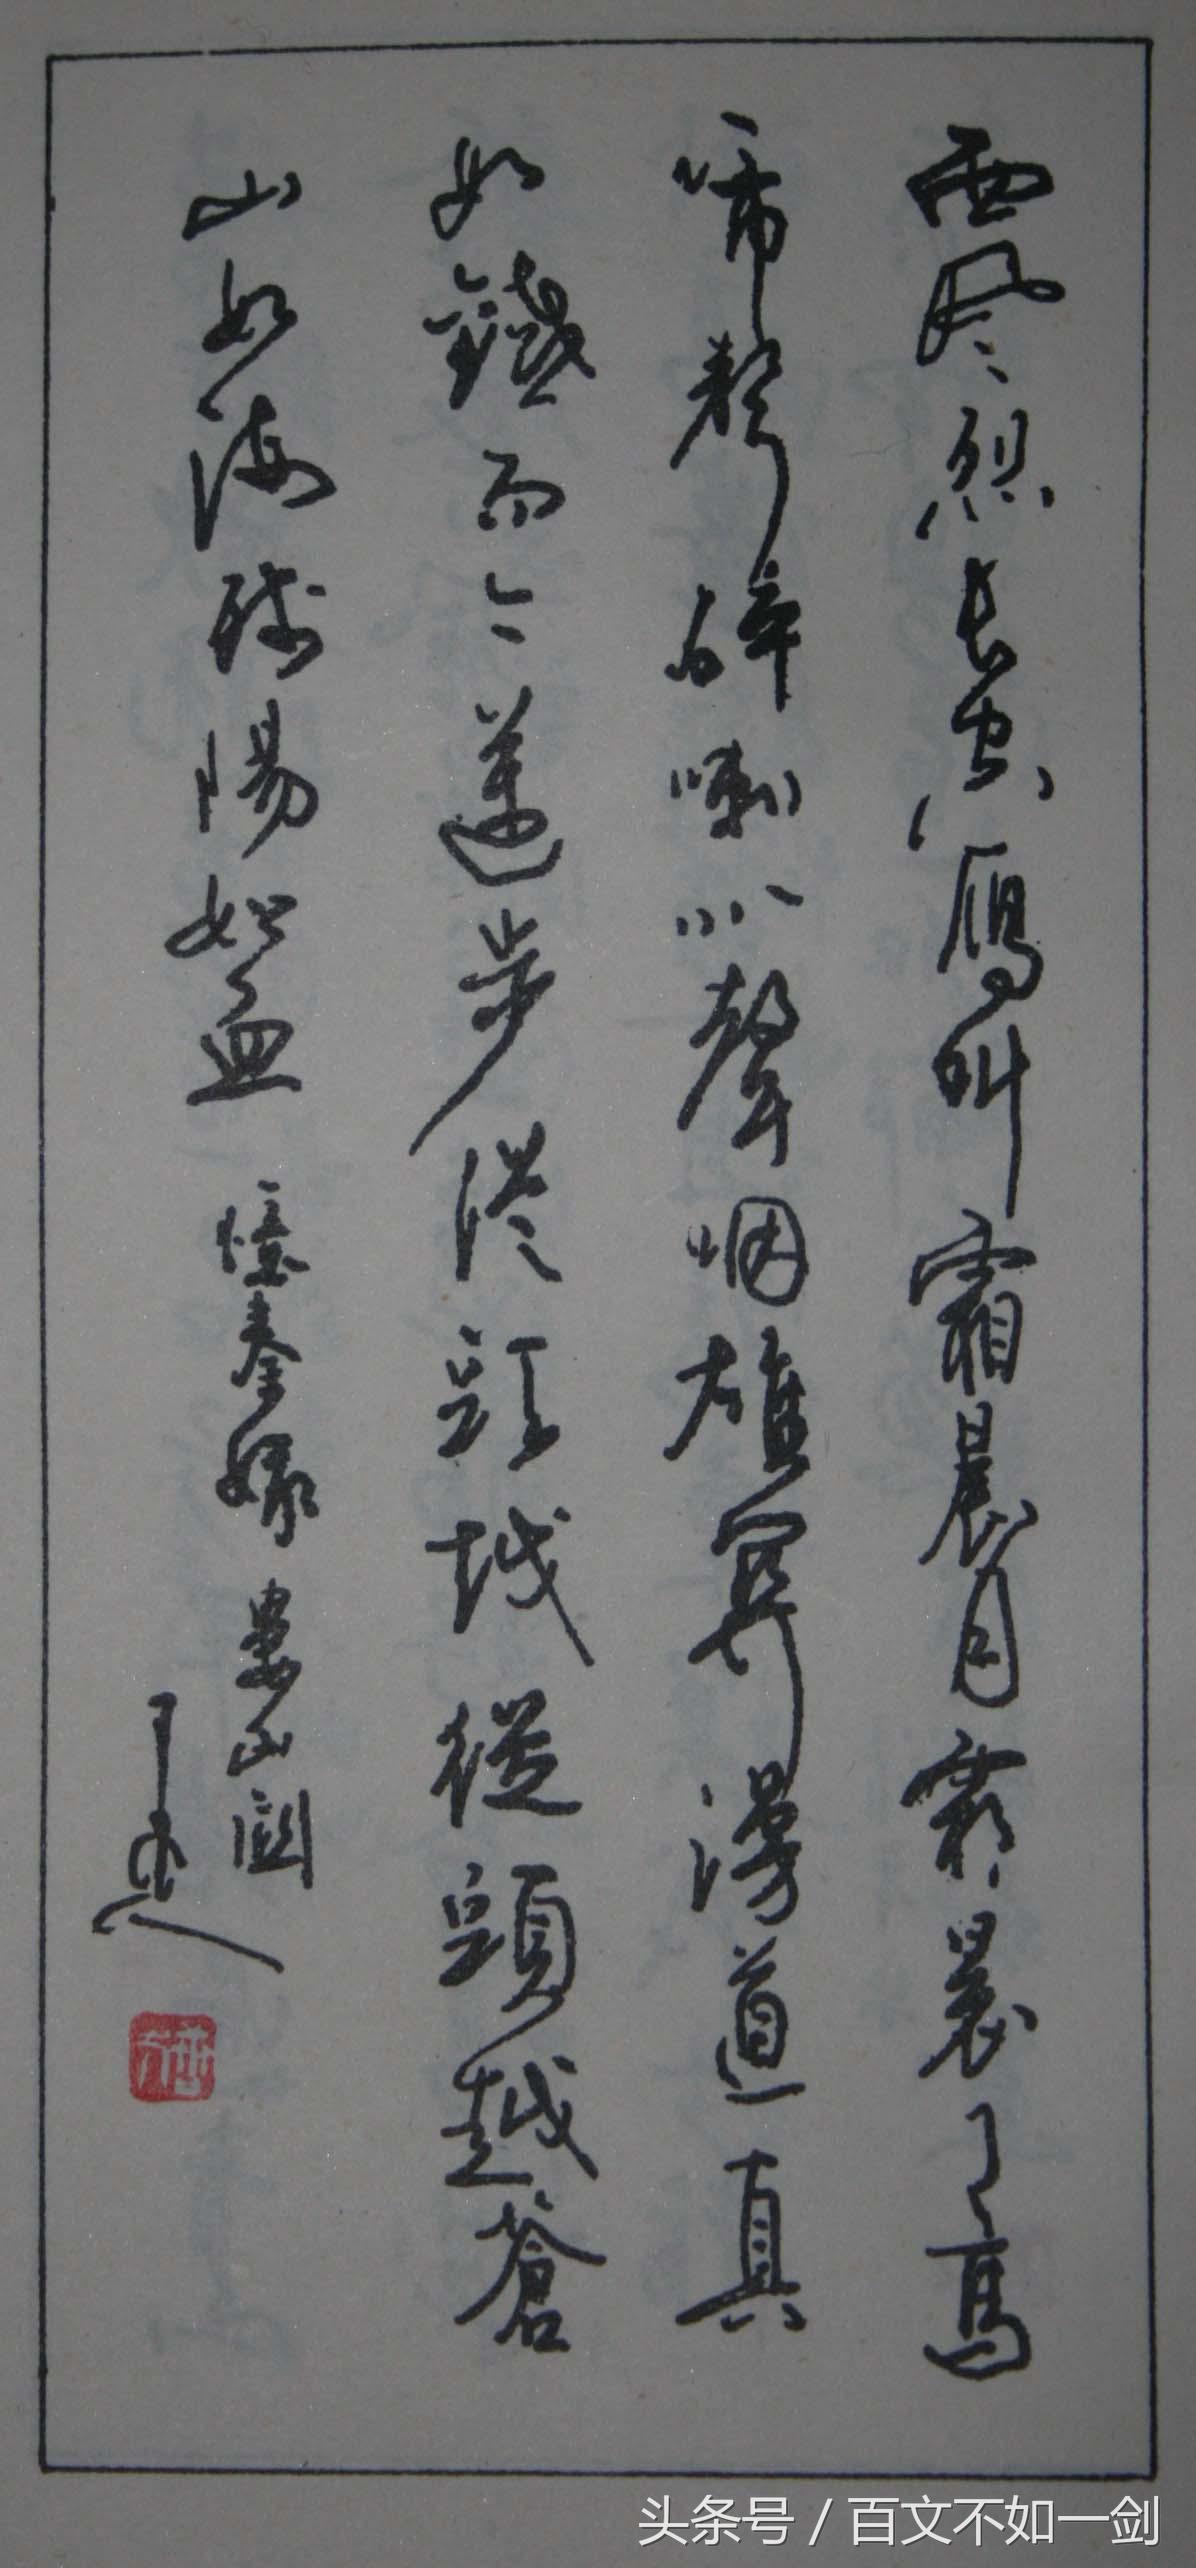 西风烈長空雁叫霜晨月霜晨月馬
啼聲碎喇叭聲咽雄關漫道真
如鐵而今邁步從頭越從頭越蒼
山如海残陽如血
憶秦娥 婁山關
头条号 / 百文不如一剑